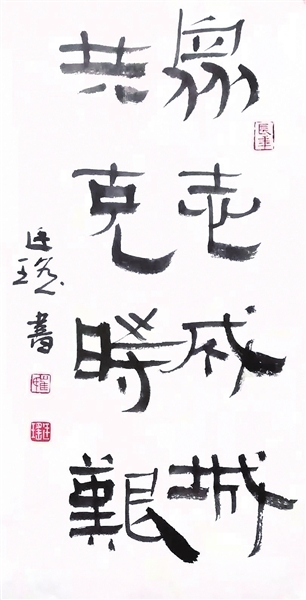 眾志成城
共克時艱
書